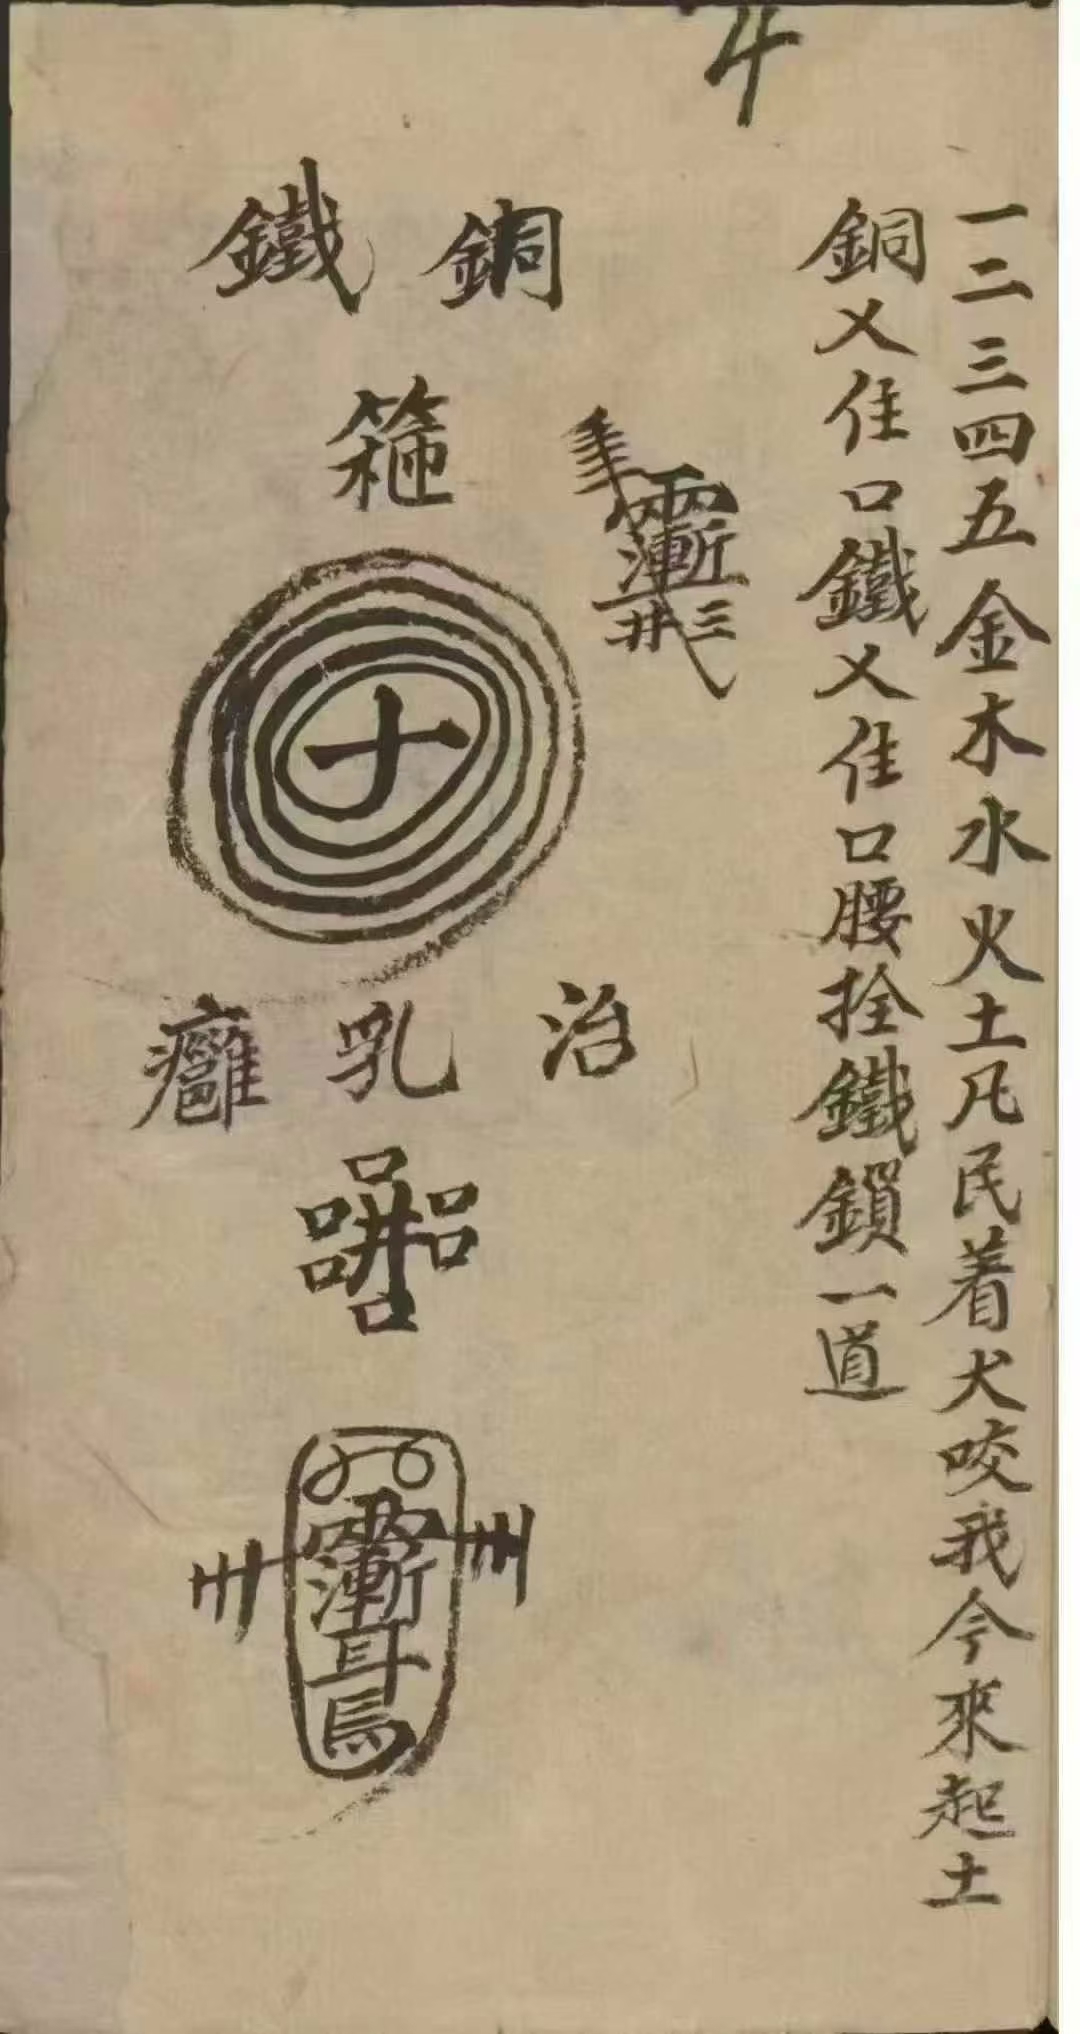 一二三四五金木水火土凡民着犬咬我今來起土
銅乂住口鐵乂住口腰拴鐵鎖一道
銅鐵
箍
十
治乳癰